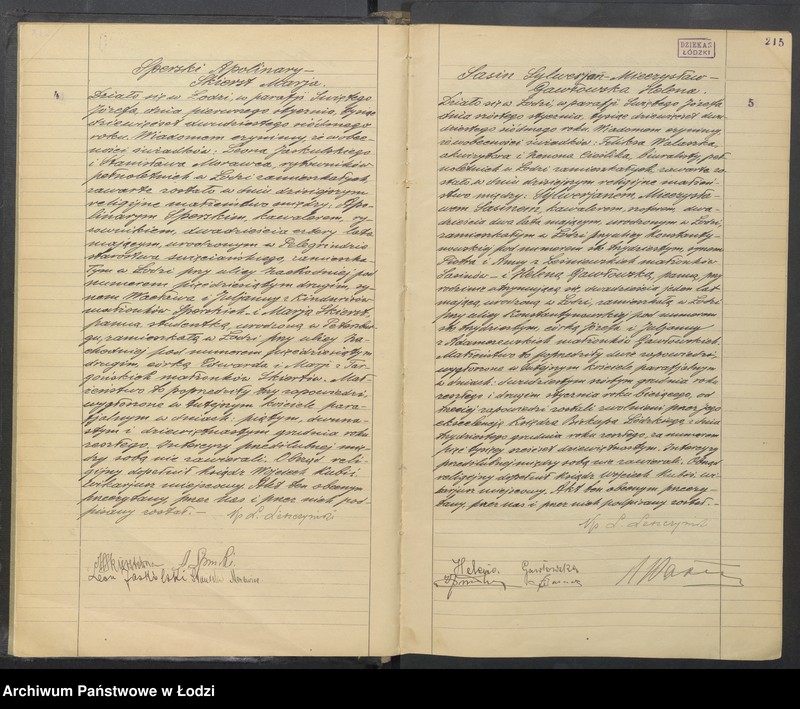 Sperski Apolinary –
Skierst Marja.
4
Działo się w Łodzi, w parafji Świętego
Józefa, dnia pierwszego stycznia, tysiąc
dziewięćset dwudziestego siódmego
roku. Wiadomem czynimy, że w obec-
ności świadków: Leona Jaskulskiego
i Stanisława Morawca, rysowników
pełnoletnich w Łodzi zamieszkałych,
zawarte zostało w dniu dzisiejszym
religijne małżeństwo między: Apo-
linarym Sperskim, kawalerem, ry-
sownikiem, dwadzieścia cztery lata
mającym, urodzonym w
starostwa święciańskiego, zamieszka-
łym w Łodzi przy ulicy Zachodniej pod
numerem pięćdziesiątym drugim, sy-
nem Wacława i Juljanny z
małżonków Sperskich – i Marją Skierst,
panną, studentką, urodzoną w Petersbu-
gu, zamieszkałą w Łodzi przy ulicy Za-
chodniej pod numerem pięćdziesiątym
drugim, córką Edwarda i Marji z Tar-
gońskich małżonków Skierstów. Mał-
żeństwo to poprzedziły trzy zapowiedzi,
wygłoszone w tutejszym kościele para-
fjalnym w dniach: piątym, dwuna-
stym i dziewiętnastym grudnia roku
zeszłego. Intercyzy przedślubnej mię-
dzy sobą nie zawierali. Obrzęd reli-
gijny dopełnił ksiądz Wojciech Kubiś
wikarjusz miejscowy. Akt ten obecnym
przeczytany, przez Nas i przez nich pod-
pisany został. –
Xp L. Leszczyński
MSkierstówna A. Sperski
Leon Jaskólski Stanisław Morawiec
DZIEKAN
ŁÓDZKI
215
Sasin Sylwerjan-Mieczysław –
Gawłowska Helena.
5
Działo się w Łodzi, w parafji Świętego Józefa
dnia szóstego stycznia, tysiąc dziewięćset dwu-
dziestego siódmego roku. Wiadomem czynimy,
że w obecności świadków: Feliksa Walaszka,
i Zenona Cieślika, biuralisty, peł-
noletnich w Łodzi zamieszkałych, zawarte zo-
stało w dniu dzisiejszym religijne małżeń-
stwo między: Sylwerjanem, Mieczysła-
wem Sasinem, kawalerem, dwa-
dzieścia dwa lata mającym, urodzonym w Łodzi,
zamieszkałym w Łodzi przy ulicy Konstanty-
nowskiej pod numerem sto trzydziestym, synem
Piotra i Anny z Leśniewskich małżonków
Sasinów – i Heleną Gawłowską, panną, przy
rodzinie utrzymującą się, dwadzieścia jeden lat
mającą, urodzoną w Łodzi, zamieszkałą w Łodzi
przy ulicy Konstantynowskiej pod numerem
sto trzydziestym, córką Józefa i Juljanny
z Adamczewskich małżonków Gawłowskich.
Małżeństwo to poprzedziły dwie zapowiedzi,
wygłoszone w tutejszym kościele parafjalnym
w dniach: dwudziestym szóstym grudnia roku
zeszłego i drugim stycznia roku bieżącego, od
trzeciej zapowiedzi zostali zwolnieni przez Jego
Ekscelencję Księdza Biskupa Łódzkiego, z dnia
trzydziestego grudnia roku zeszłego, za numerem
pięć tysięcy sześćset dziewięćdziesiątym. Intercyzy
przedślubnej między sobą nie zawierali. Obrzęd
religijny dopełnił ksiądz Wojciech Kubiś wi-
karjusz miejscowy. Akt ten obecnym przeczy-
tany przez nas i przez nich podpisany został. –
Xp L. Leszczyński
Helena Gawłowska
Archiwum Państwowe w Łodzi